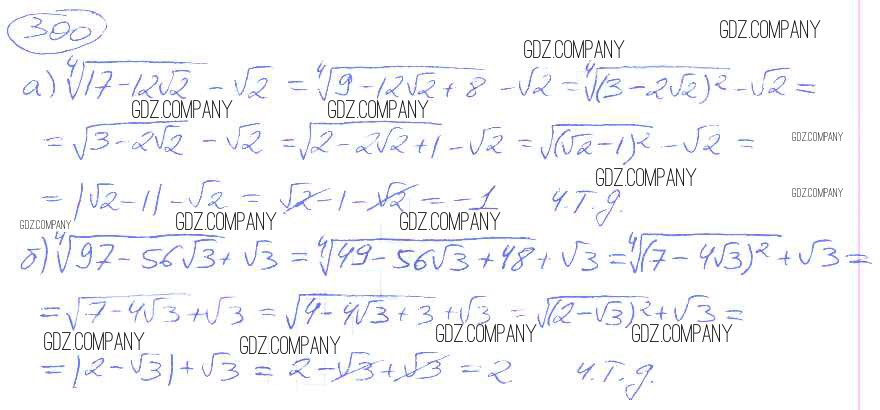 300
GDZ.COMPANY GDZ.COMPANY
а) ∜(17-12√2) - √2 = ∜(9-12√2+8) - √2 = ∜((3-2√2)²) - √2 =
GDZ.COMPANY GDZ.COMPANY
= √(3-2√2) - √2 = √(2-2√2+1) - √2 = √((√2-1)²) - √2 = GDZ.COMPANY
GDZ.COMPANY
= |√2-1| - √2 = √2-1-√2 = -1 ч.т.д. GDZ.COMPANY
GDZ.COMPANY GDZ.COMPANY GDZ.COMPANY
б) ∜(97-56√3) + √3 = ∜(49-56√3+48) + √3 = ∜((7-4√3)²) + √3 =
= √(7-4√3) + √3 = √(4-4√3+3) + √3 = √((2-√3)²) + √3 =
GDZ.COMPANY GDZ.COMPANY GDZ.COMPANY GDZ.COMPANY
= |2-√3| + √3 = 2-√3+√3 = 2 ч.т.д.